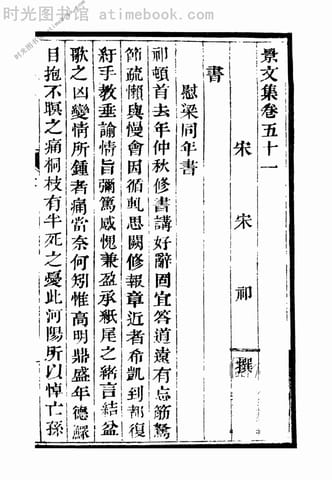 时光图书馆-atimebook.com
景文集卷五十一
宋 宋 祁 撰
書
慰梁同年書
祁頓首去年仲秋修書講好辭固宜答道遠有忘筋駑
節疏懶與慢會因循軋思闕修報章近者希凱到都復
紆手教垂諭情旨彌篤感愧兼盈承紙尾之絡言結盆
歌之凶變情所鍾者痛當奈何矧惟高明鼎盛年德鰥
目抱不瞑之痛桐枝有半死之憂此河陽所以悼亡孫